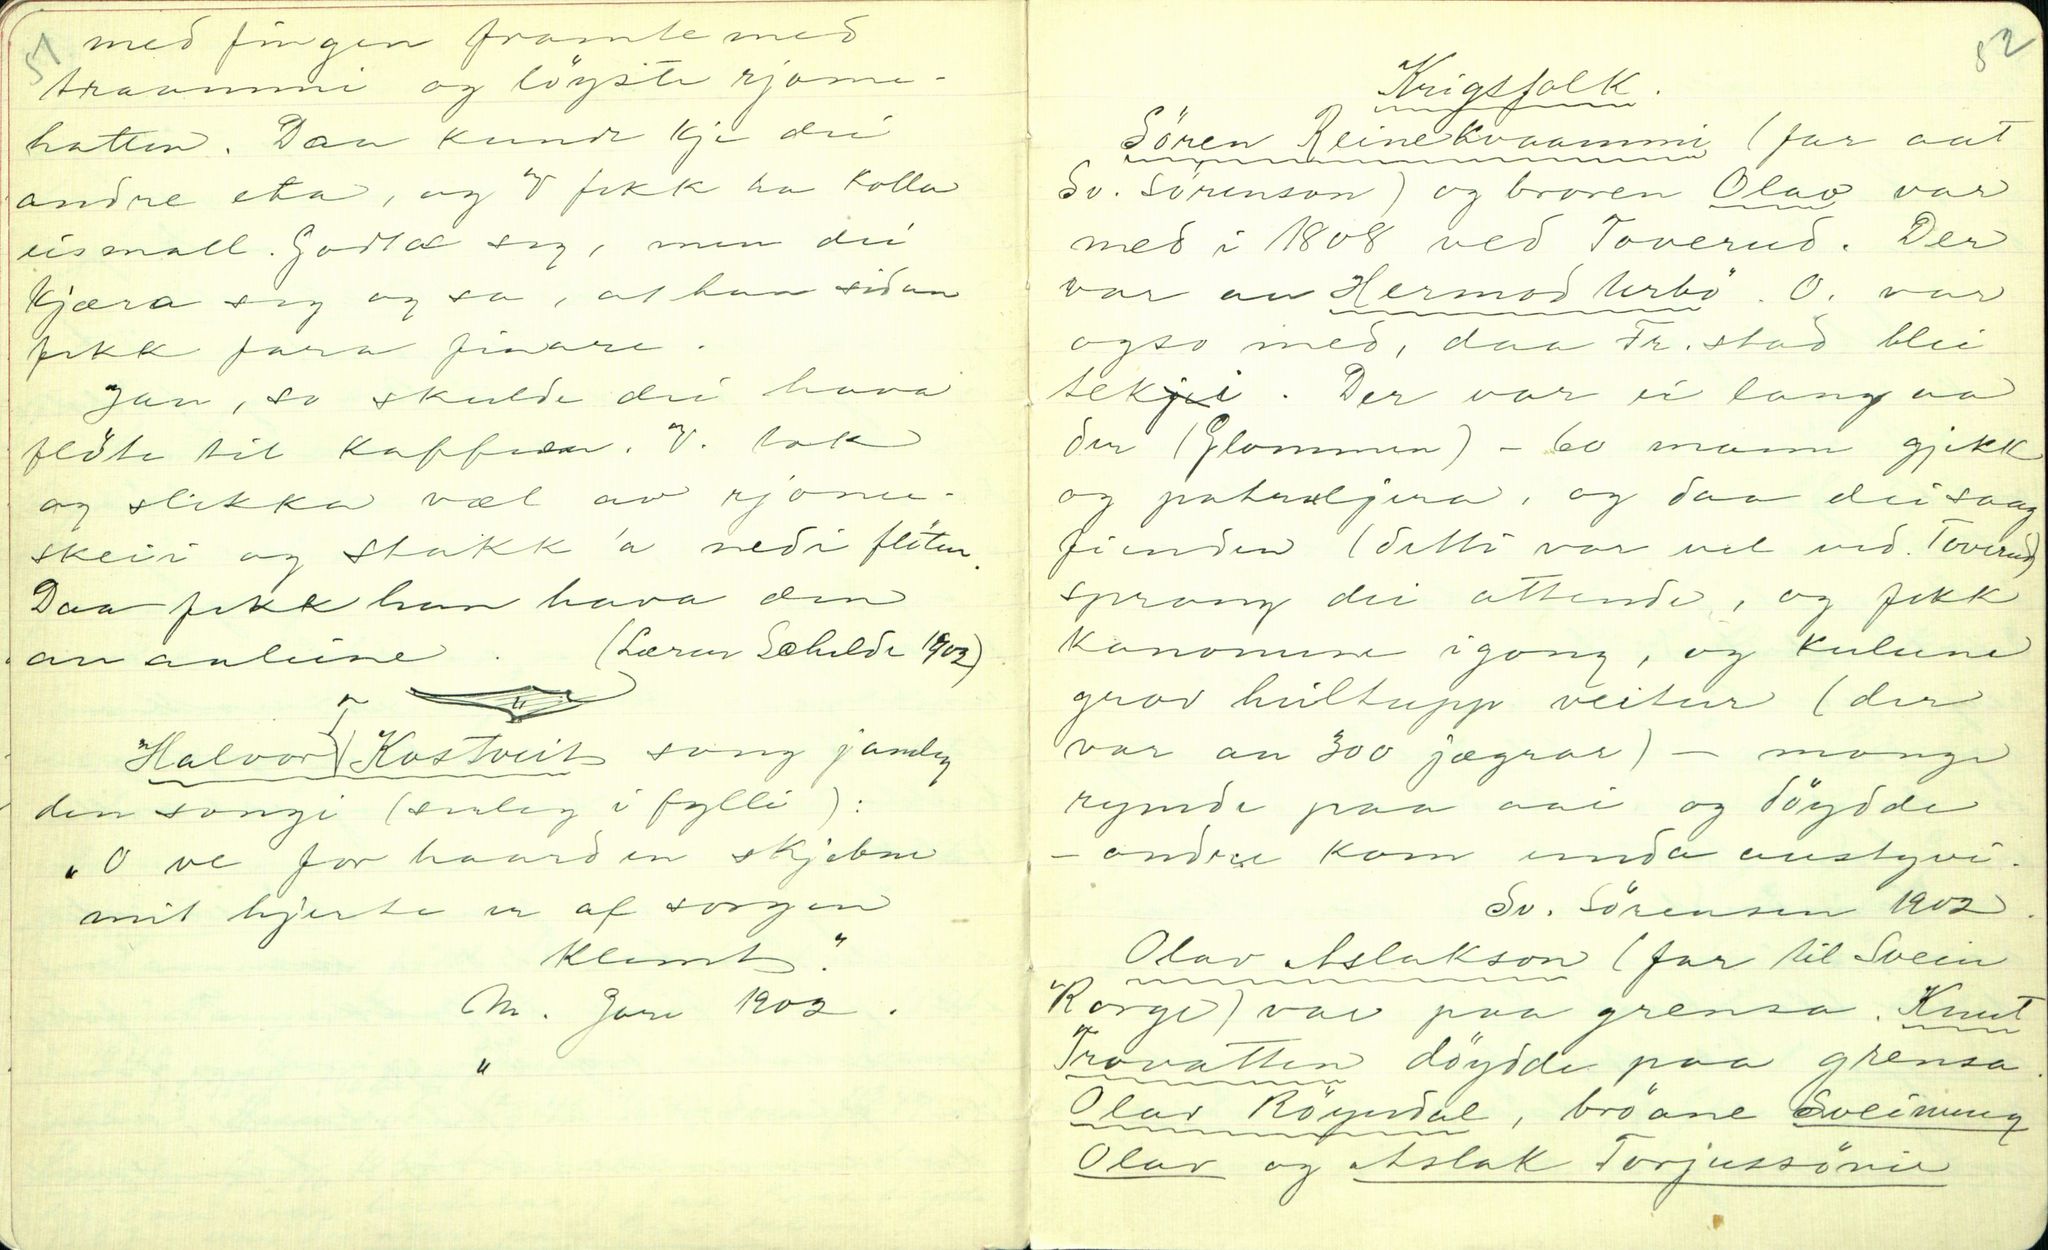 51
med fingen framte med
traammi og löyste rjome-
hatten. Daa kunde kje dei
andre eta, og V fekk ha kolla
eismall. Godta seg, men dei
kjæra seg og sa, at han sidan
fekk fara finare.
Jau, so skulde dei hava
flöte til kaffien. V. tok
og slikka væl av rjome-
skeii og stakk 'a nedi flöten.
Daa fekk han hava den
au aaleine. (Lærar Schelde 1902)
"
Halvor Kostveit song jamleg
den songi (serleg i fylli):
"O ve for haard en skjebne
mit hjerte er af sorgen
klemt."
M. Gare 1902.
"
52
Krigsfolk.
Sören Reinekvaammi (far aat
Sv. Sörenson) og broren Olav var
med i 1808 ved Toverud. Der
var au Hermod Urbö. O. var
ogso med, daa Fr.stad blei
tekji. Der var ei lang aa
der (Glommen) – 60 mann gjekk
og patruljera, og daa dei saag
fienden (detti var vel ved Toverud)
sprang dei attende, og fekk
kanonune igong, og kulune
grov heiltupp veitur (der
var au 300 jægrar) – mange
rymde paa aai og döydde
– andre kom unda austyvi.
Sv. Sörensen 1902.
Olav Aslakson (far til Svein
Rorge) var paa grensa. Knut
Trovatten döydde paa grensa.
Olav Röyrdal, bröane Sveinung
Olav og Aslak Torjussönir